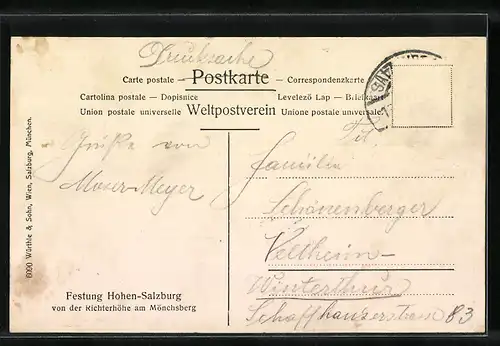 Drucksache
Carte postale — Postkarte — Correspondenzkarte
Cartolina postale — Dopisnice Levelező Lap — Briefkaart
Union postale universelle Weltpostverein Unione postale universale
Tit.
Grüße von
Familie
Moser-Meyer
Schönenberger
Veltheim-
Winterthur
Schaffhauserstrasse 83
Festung Hohen-Salzburg
von der Richterhöhe am Mönchsberg
6090 Würthle & Sohn, Wien, Salzburg, München.